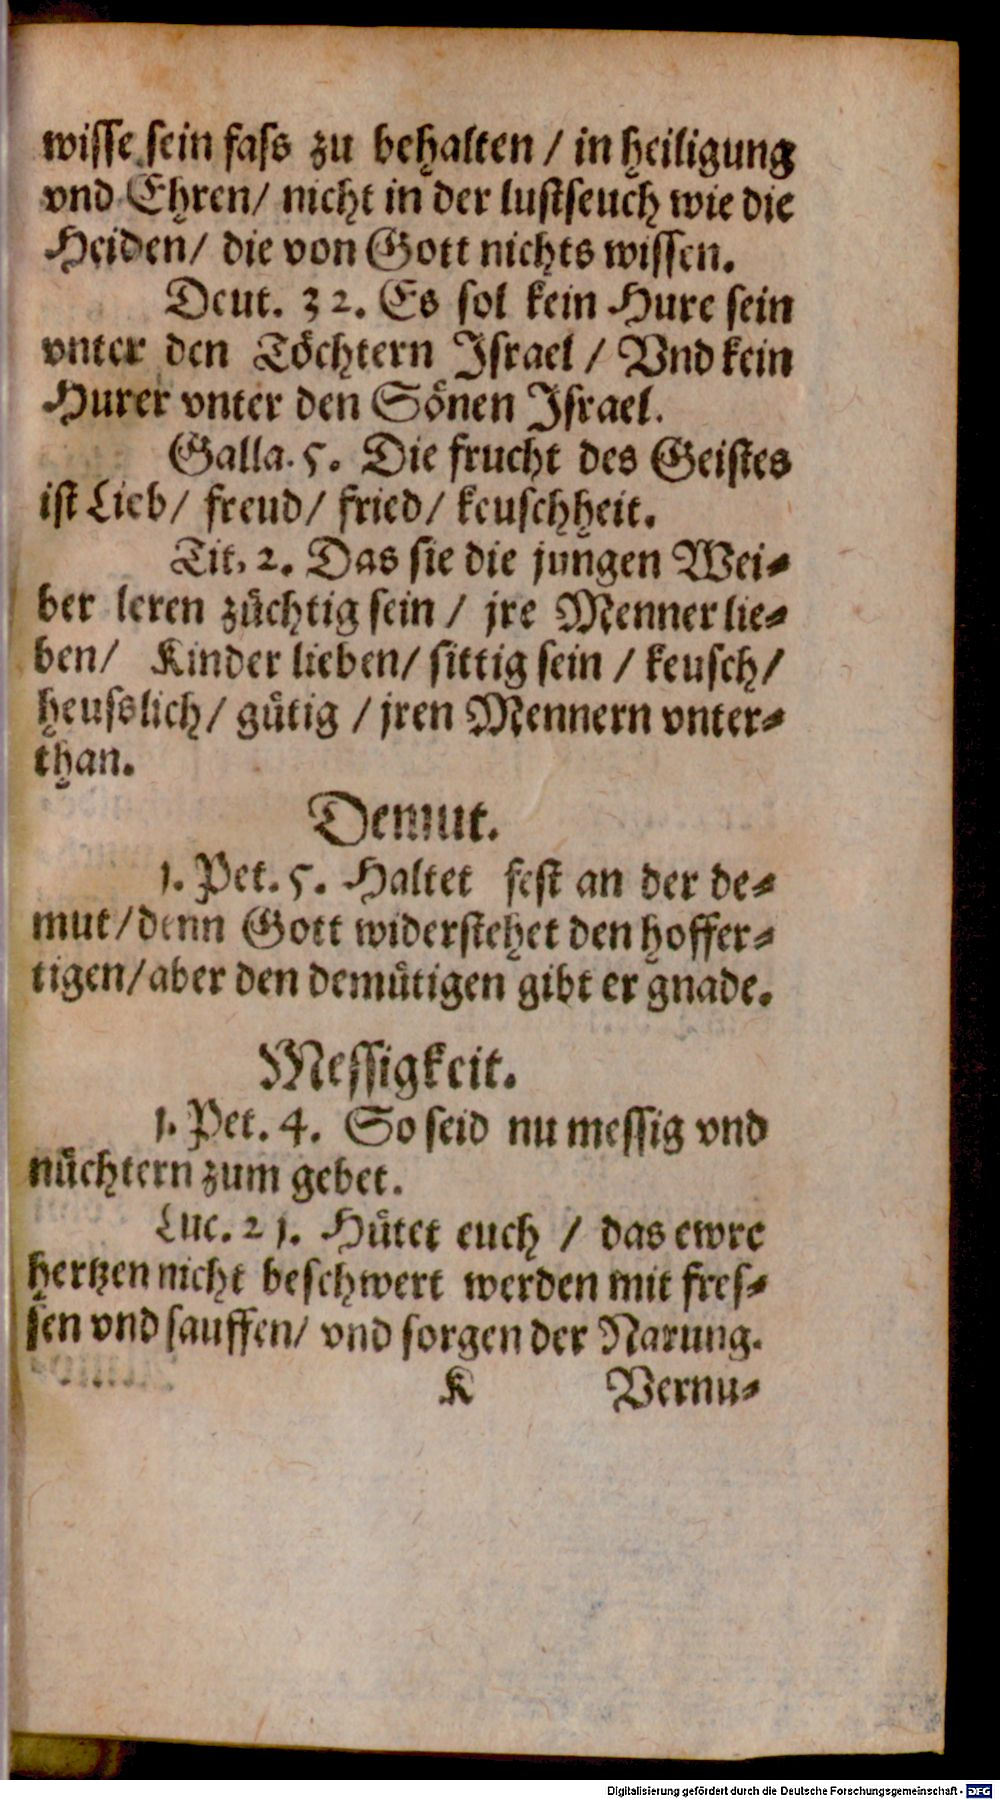 wisse sein fass zu behalten / in heiligung
vnd Ehren/ nicht in der lustseuch wie die
Heiden/ die von Gott nichts wissen.
Deut. 32. Es sol kein Hure sein
vnter den Töchtern Israel / Vnd kein
Hurer vnter den Sönen Israel.
Galla. 5. Die frucht des Geistes
ist Lieb/ freud/ fried/ keuschheit.
Tit. 2. Das sie die jungen Wei-
ber leren züchtig sein / jre Menner lie-
ben/ Kinder lieben/ sittig sein / keusch/
heusslich/ gütig / jren Mennern vnter-
than.
Demut.
1. Pet. 5. Haltet fest an der de-
mut/denn Gott widerstehet den hoffer-
tigen/aber den demütigen gibt er gnade.
Messigkeit.
1. Pet. 4. So seid nu messig vnd
nüchtern zum gebet.
Luc. 21. Hütet euch / das ewre
hertzen nicht beschwert werden mit fres-
sen vnd sauffen/ vnd sorgen der Narung.
K Vernu-
Digitalisierung gefördert durch die Deutsche Forschungsgemeinschaft - DFG